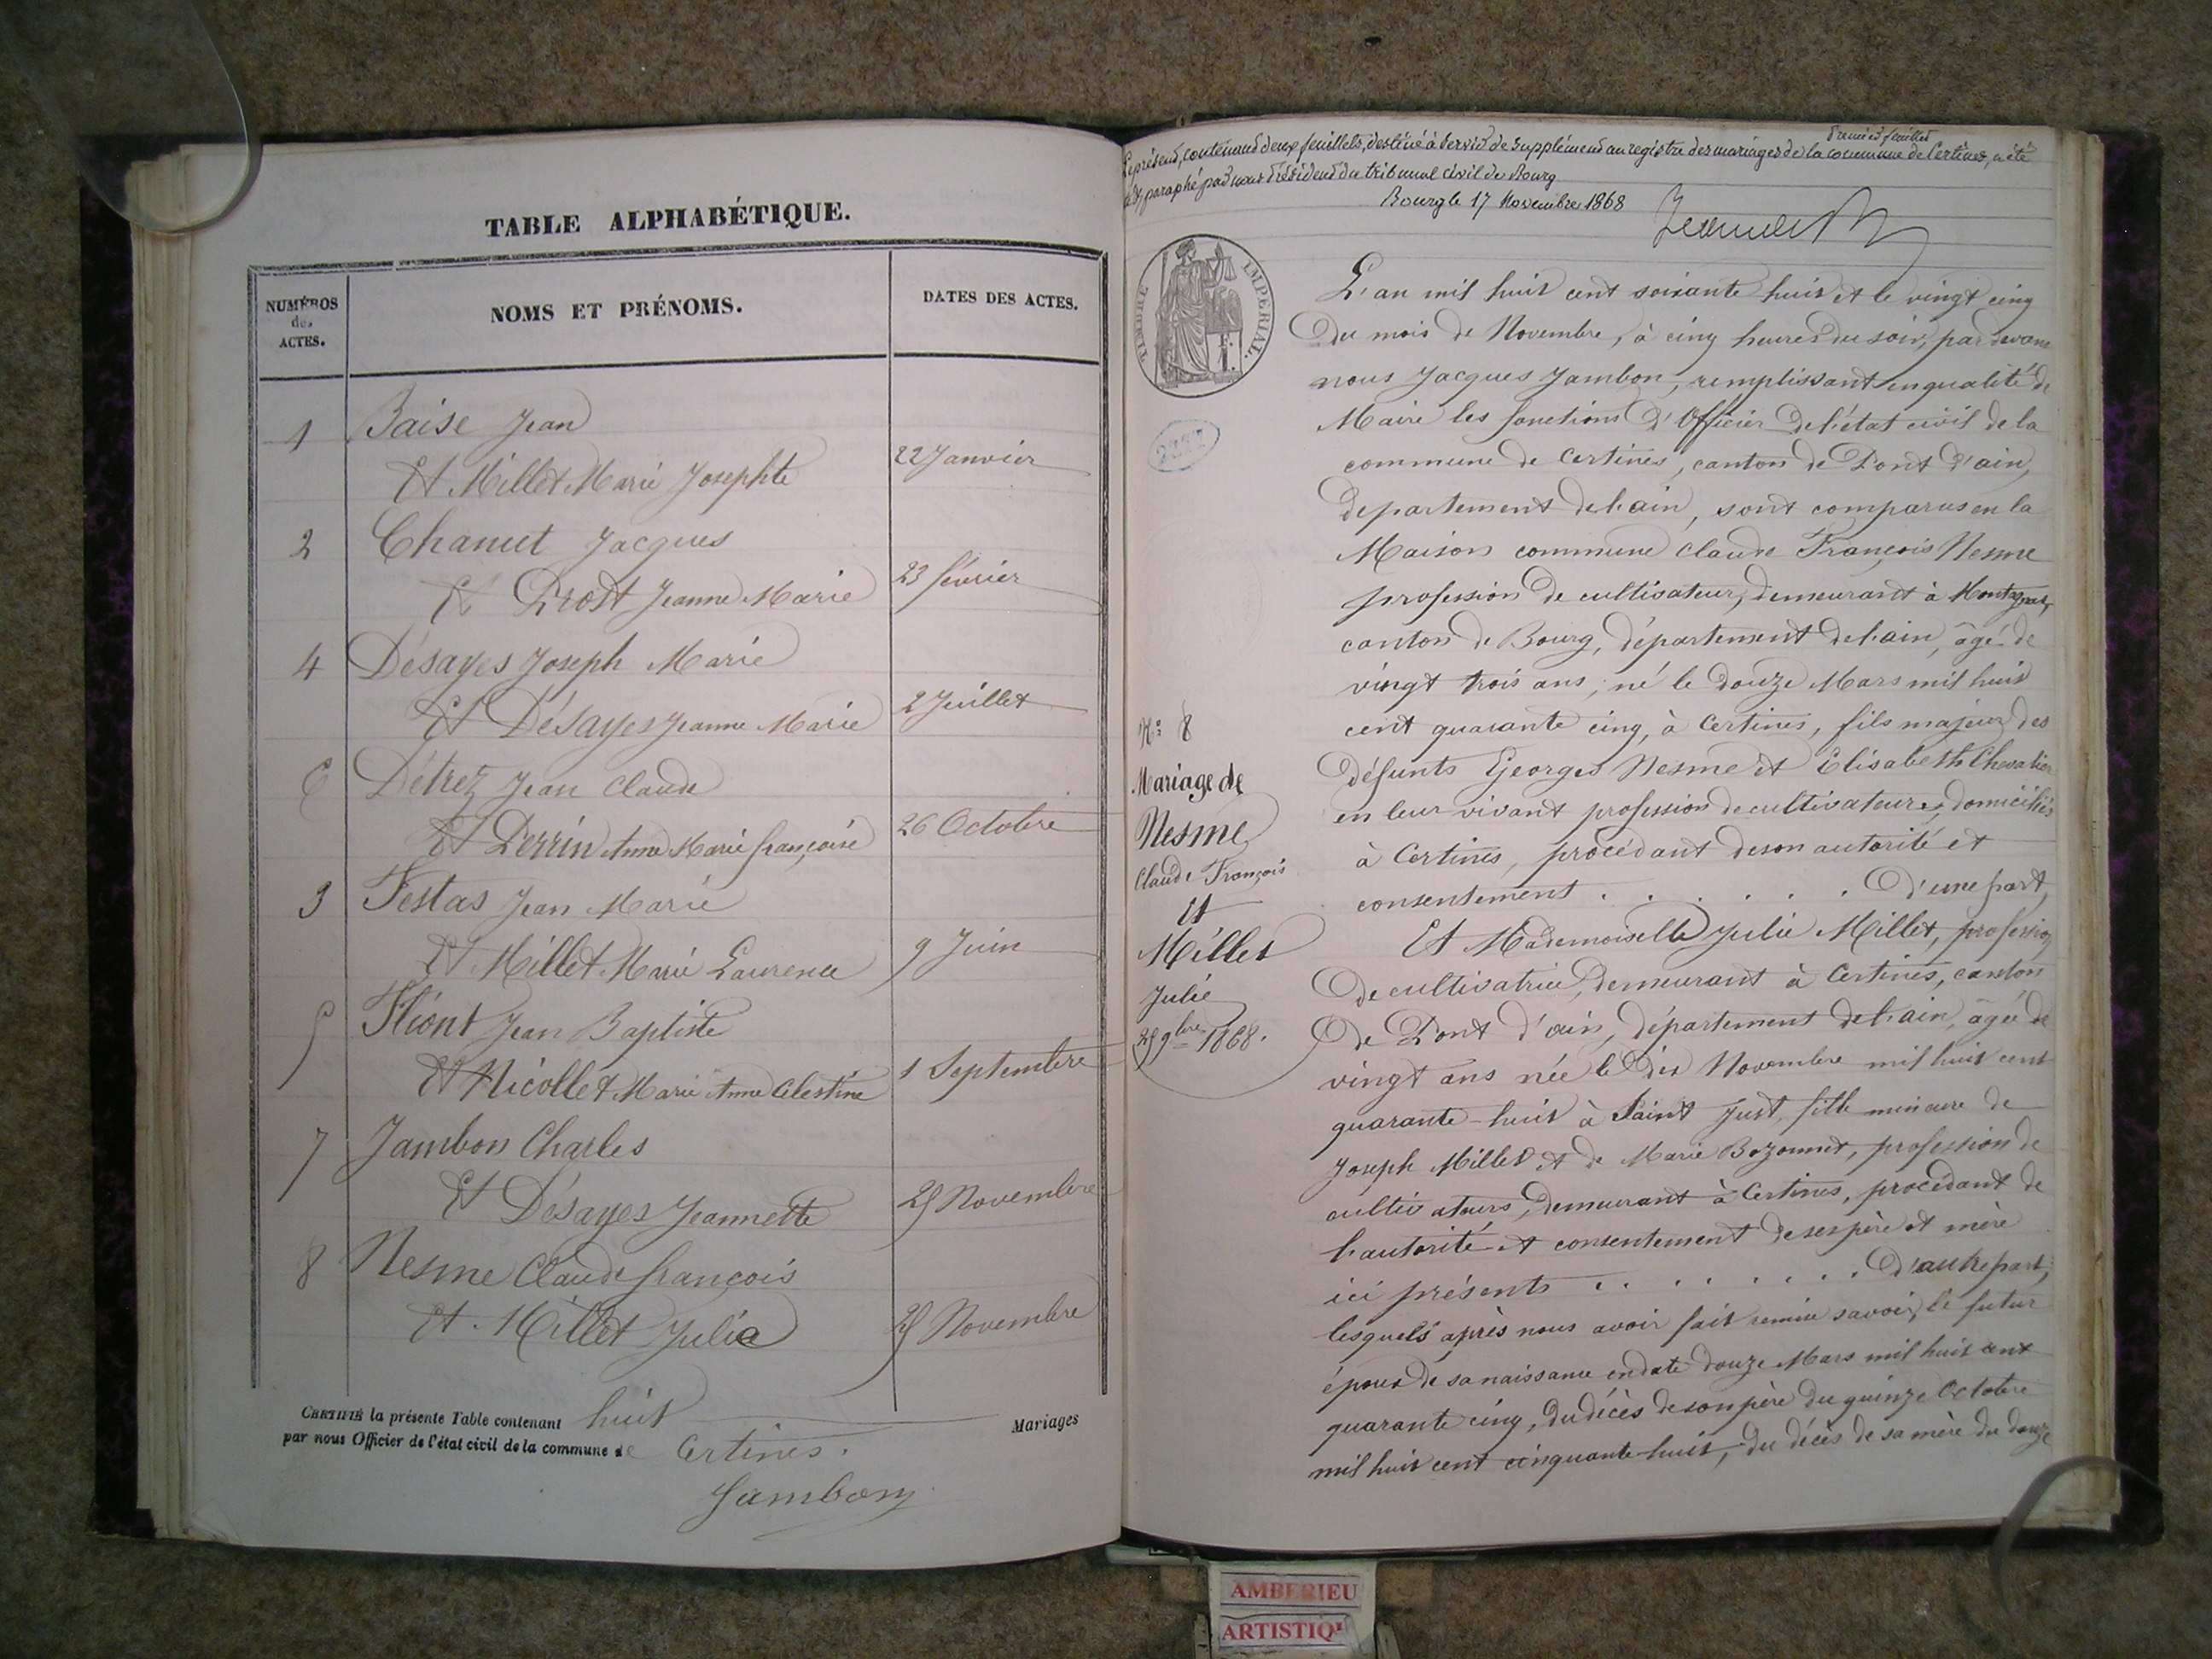 TABLE ALPHABÉTIQUE.
NUMÉROS
des
ACTES.
NOMS ET PRÉNOMS.
DATES DES ACTES.
1 Baise Jean
Et Millet Marie Josephte 22 Janvier
2 Chanut Jacques
Et Prost Jeanne Marie 23 février
4 Désayes Joseph Marie
Et Désayes Jeanne Marie 2 Juillet
6 Détrez Jean Claude
Et Perrin Anne Marie françoise 26 Octobre
3 Festas Jean Marie
Et Millet Marie Laurence 9 Juin
5 Fliont Jean Baptiste
Et Nicollet Marie Anne Célestine 1 Septembre
7 Jambon Charles
Et Désayes Jeannette 25 Novembre
8 Nesme Claude françois
Et Millet Julie 25 Novembre
CERTIFIÉ la présente Table contenant huit Mariages
par nous Officier de l'état civil de la commune de Certines.
Jambon
premier feuillet
Le présent, contenant deux feuillets, destiné à servir de supplément au registre des mariages de la commune de Certines, a été
paraphé par nous Président du tribunal civil de Bourg
Bourg le 17 Novembre 1868
TIMBRE IMPÉRIAL.
L'an mil huit cent soixante huit et le vingt cinq
du mois de Novembre, à cinq heures du soir, par devant
nous Jacques Jambon, remplissant en qualité de
Maire les fonctions d'Officier de l'état civil de la
commune de Certines, canton de Pont d'ain,
département de l'ain, sont comparus en la
Maison commune Claude François Nesme
profession de cultivateur, demeurant à Montagnat,
canton de Bourg, département de l'ain, âgé de
vingt trois ans, né le douze Mars mil huit
cent quarante cinq, à Certines, fils majeur des
défunts Georges Nesme et Elisabeth Chevalier
en leur vivant profession de cultivateurs, domiciliés
à Certines, procédant de son autorité et
consentement . . . . . . d'une part,
Et Mademoiselle Julie Millet, profession
de cultivatrice, demeurant à Certines, canton
de Pont d'ain, département de l'ain, âgée de
vingt ans née le dix Novembre mil huit cent
quarante-huit à Saint Just, fille mineure de
Joseph Millet et de Marie Bozonnet, profession de
cultivateurs, demeurant à Certines, procédant de
l'autorité et consentement de ses père et mère
ici présents . . . . . . . d'autre part,
lesquels après nous avoir fait remise savoir, le futur
époux de sa naissance en date douze Mars mil huit cent
quarante cinq, du décès de son père du quinze Octobre
mil huit cent cinquante-huit, du décès de sa mère du douze
N° 8
Mariage de
Nesme
Claude François
Et
Millet
Julie
25 9bre 1868.
AMBERIEU
ARTISTIQ